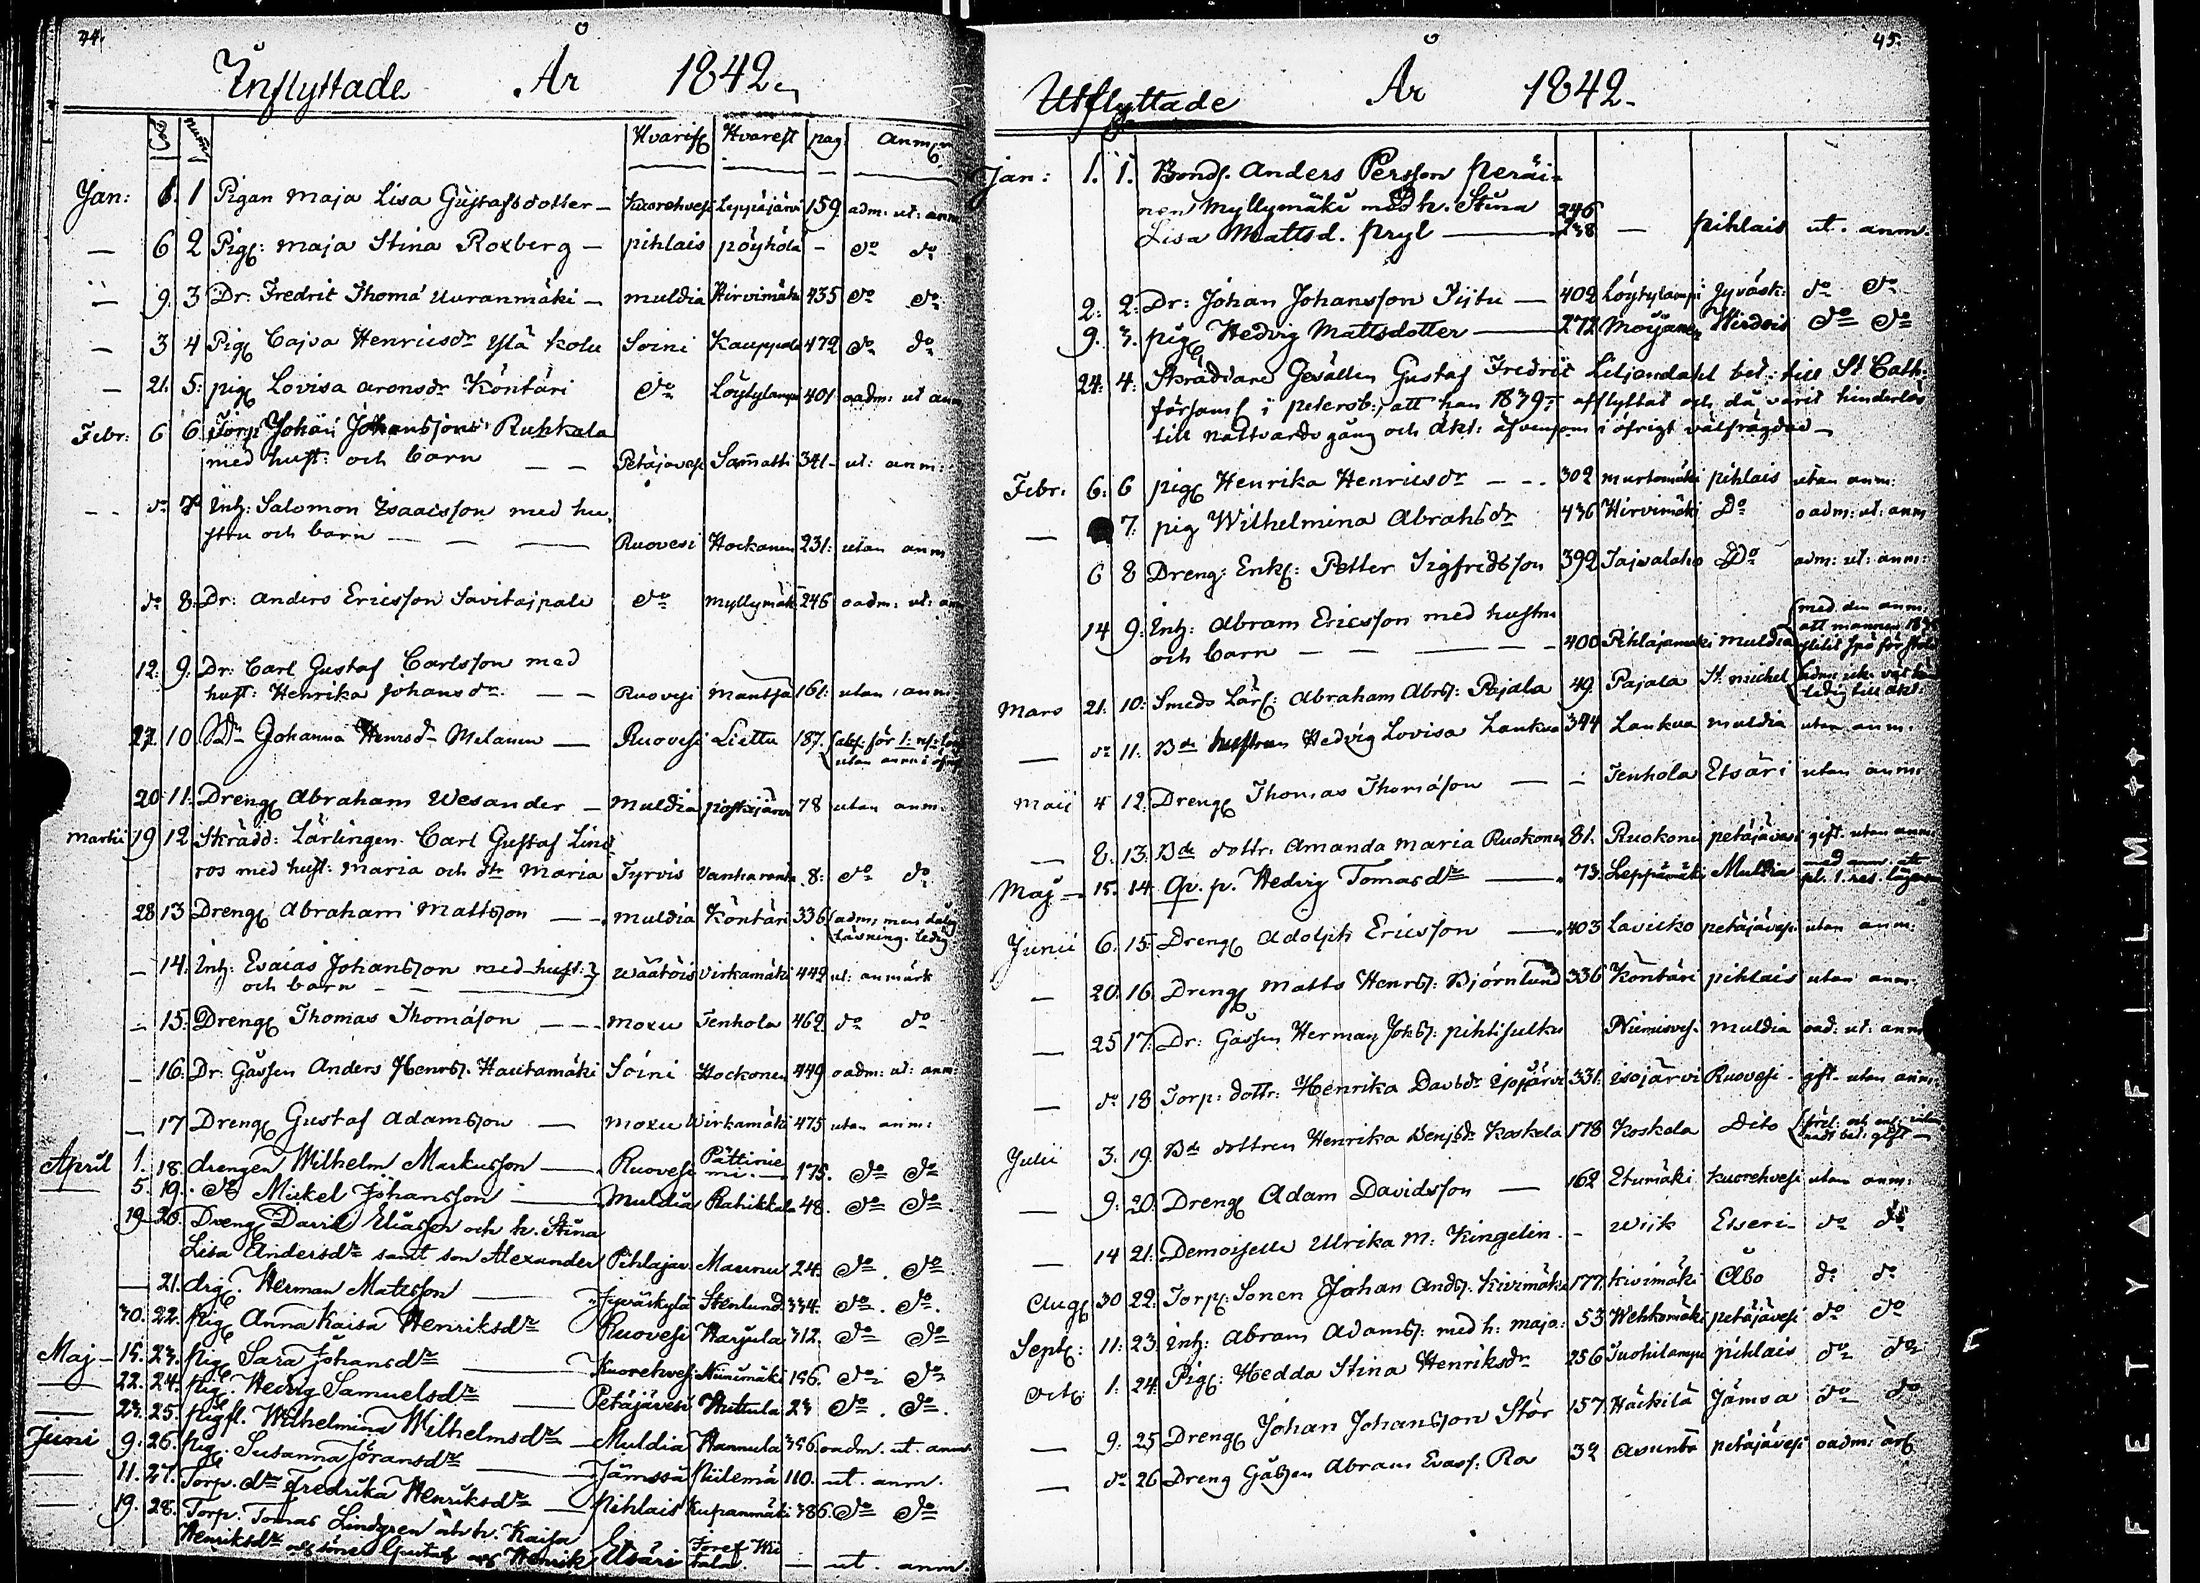 44.
Inflyttade År 1842
Hvarifr Hvarest pag. Anm:
Jan: 6. 1 Pigan Maja Lisa Gustafsdotter — Kuorehvesi Leppäjärvi 159 adm: ut: anm
— 6 2 Pig: Maja Stina Roxberg — pihlais pöyhölä - do do
— 9. 3 Dr: Fredric Thomás Uuranmäki — muldia Hirvimäki 435 do do
— 3 4 Pig Cajsa Henricsdr Ylä Kolu Soini Kauppala 472 do do
— 21. 5: pig Lovisa Aronsdr Köntäri do Löytylampi 401 oadm: ut anm
Febr: 6 6 Torp Johan Johansson Ruhkala
med hust: och barn — — Petäjavesi Samatti 341- ut: anm:
- - do 7 Inh: Salomon Isaacsson med hu-
stru och barn — — — Ruovesi Hockanen 231: utan anm
do 8: Dr: Anders Ericsson Savitaipale do Myllymäk 246 oadm: ut: anm
12: 9: Dr: Carl Gustaf Carlsson med
hust: Henrika Johansdr. — — Ruovesi Mäntsä 161: utan anm:
27. 10 Johanna Henrsdr Melanen — Ruovesi Liettu 187.
utan anm i öfrigt
20. 11: Dreng Abraham Wesander — Muldia 78 utan anm.
Martii 19 12 Skrädd: Lärlingen Carl Gustaf Lind
ros med hust: Maria och dtr Maria Tyrvis Vanharanta 8: do do
28 13 Dreng Abraham Mattsson — — muldia Köntäri 336 (adm: men dålig
läsning. ledig
— 14: Inh: Esaias Johansson med hust:
och barn — — — Wäätöis Virkamäki 442 ut: anmärk
— 15: Dreng Thomas Thomásson — — Moxu Tenhola 462 do do
— 16: Dr: Gåssen Anders Henrss. Hautamäki Soini Hockonen 449 oadm: ut: anm:
— 17 Dreng Gustaf Adamsson — Moxu Wirkamäki 475 utan anm:
April 1. 18. drengen Wilhelm Markusson — Ruovesi Pättinie
mi. — 175. do do
5. 19. do Mickel Johansson — Muldia Rahikkala 48. do do.
19. 20. Dreng David Eliasson och h. Stina
Lisa Andersdr samt son Alexander Pihlajav. Maunu 24. do. do
— 21. drg. Herman Matsson — Jyväskylä Stenlund 334. do. do.
30. 22. Pig Anna Kaisa Henriksdr Ruovesi Harjula 312. do do
Maj — 15. 23. Pig Sara Johansdr — Kuorehvesi Niinimäki 156. do do
— 22. 24. Pig. Hedvig Samuelsdr — Petäjävesi Huttula 23 do. do.
— 23. 25. Pigfl. Wilhelmina Wilhelmsdr — Muldia Hannula 356. oadm. ut. anm.
Juni 9. 26. Pig. Susanna Jöransdr — Jämssä Niilemä 110. ut. anm.
— 11. 27. Torp. dr Fredrika Henriksdr — Pihlais Kupanmäki 386. do do
— 19. 28. Torp. Tomas Lindgren och h. Kaisa
Henriksdr och söner Gustaf och Henrik Etsäri — ut. anm.
45.
Utflyttade År 1842.
Jan: 1. 1. Bonds. Anders Persson Peräi-
nen Myllymäki med h. Stina 246
Lisa Mattsd. Pryl — 238 — pihlais ut. anm.
2: 2: Dr: Johan Johansson Tijtu — 402 Löytylampi Jyväsk: do do
9. 3. pig Hedvig Mattsdotter — 272 Moijanen Wirdois do do
24: 4: Skräddare Gesällen Gustaf Fredric Liljendahl bet: till St Cath:
församl i petersb: att han 1839 afflyttat och då varit hinderlös
till nattvards gång och äkt: äfvensom i öfrigt välfrägdad —
Febr: 6: 6 pig Henrika Henricsdr - - 302 murtomäki pihlais utan anm:
— 7. pig Wilhelmina Abrahsdr 436 Hirvimäki Do oadm: ut: anm
6 8 Dreng: Enkl: Petter Sigfredsson 392 Taipalaho Do adm: ut: anm:
14 9: Inh: Abram Ericsson med hustru
och barn — — — 400 Pihlajamäki Muldia (med den anm.
att mannen
Mars 21: 10: Smeds Lärl: Abraham Abrss: Pajala 49 Pajala St. michel
ledig till äkt:
— do 11: Bde hustrun Hedvig Lovisa Lankua 344 Lankua Muldia utan anm.
Maii 4 12: Dreng Thomas Thomásson — - Tenhola Etsäri utan anm:
— 8. 13: Bde dottr. Amanda Maria Ruokonen 81. Ruokonen petäjävesi gift. utan anm:
Maj — 15. 14. Qv. p. Hedvig Tomasdr — 73. Leppämäki Muldia med anm. att
pl. 1. res. lägersm
Junii 6. 15: Dreng Adolph Ericsson — 403 Lavicko petäjävesi utan anm:
— 20. 16. Dreng Matts Henrss: Björnlund 336 Köntäri pihlais utan anm:
— 25 17: Dr: Gossen Herman Johss: pihtisulku Niemisvesi muldia oad: ut: anm
— do 18 Torp: dottr: Henrika Davdsdr Isojärvi 331: Isojärvi Ruovesi - gift- utan anm.
Julii 3. 19. Bde dottren Henrika Benjsdr Koskela 178 Koskela Dito
gift —
— 9: 20: Dreng Adam Davidsson — 162 Elumäki Kuorehvesi utan anm:
— 14 21: Demoiselle Ulrika M: Kingelin - - Wiik Etseri - do do
Aug 30 22: Torp: Sonen Johan Andss. Kivimäki 177. Kivimäki Åbo do do
Sept: 11: 23. Inh: Abram Adamss: med h: maja: 53 Wehkomäki petäjävesi do do
Oct 1: 24: Pig: Hedda Stina Henriksdr 256 Suohilampi pihlais do do
— 9: 25 Dreng Johan Johansson Stör 157 Häckilä Jämsä do do
— do 26 Dreng Gåssen Abram Evass: Ro 32 Asunta petäjävesi oadm:
FETYÄFILM